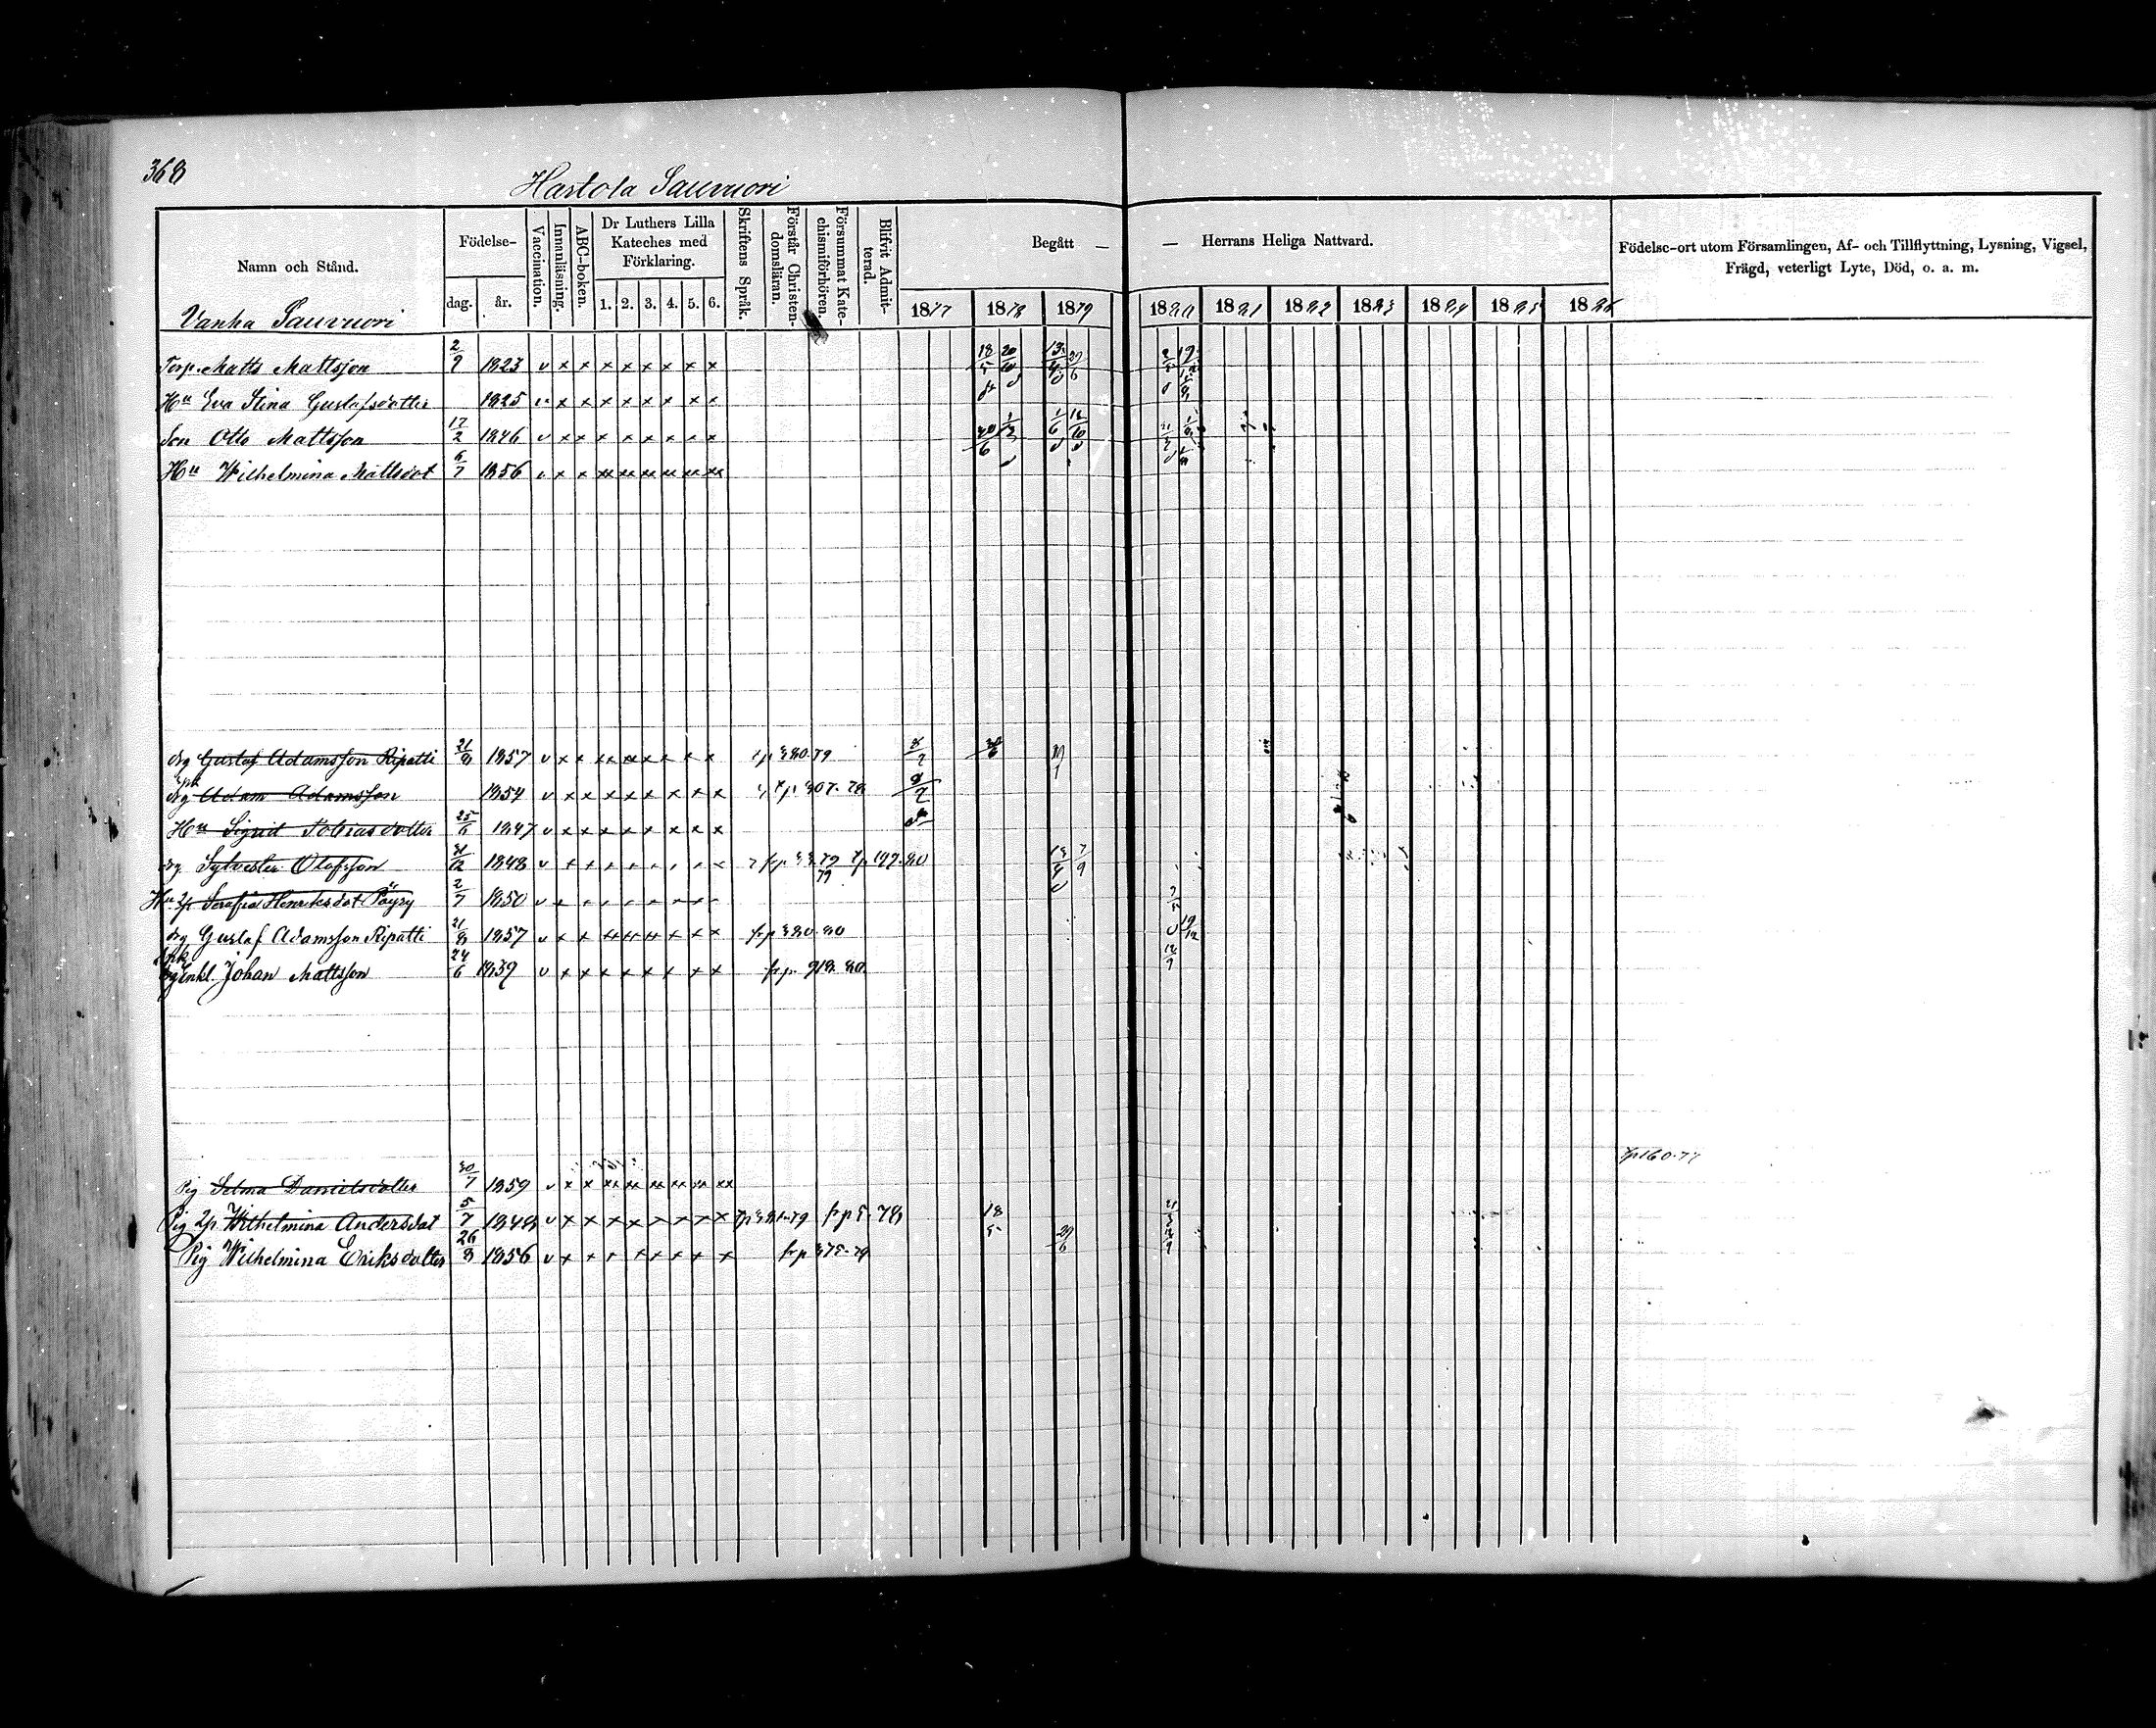 368
Hartola Sauvuori
Namn och Stånd.
Födelse-
dag. år.
Vaccination.
Innanläsning.
ABC-boken.
Dr Luthers Lilla Kateches med Förklaring.
1. 2. 3. 4. 5. 6.
Skriftens Språk.
Förstår Christendomsläran.
Försummat Katechismiförhören.
Blifvit Admitterad.
Begått — — Herrans Heliga Nattvard.
1877 1878 1879 1880 1881 1882 1883 1884 1885 1886
Födelse-ort utom Församlingen, Af- och Tillflyttning, Lysning, Vigsel,
Frägd, veterligt Lyte, Död, o. a. m.
Vanha Sauvuori
Torp. Matts Mattsson 2/9 1823 v x x x x x x x x 18/5 20/10
Hu Eva Stina Gustafsdotter 1825 x x x x x x x x
Son Otto Mattsson 17/2 1846 v x x x x x x x x
Hu Wilhelmina Mattsdot 6/7 1856 v x x xx xx xx xx xx xx
drg Gustaf Adamsson Ripatti 21/8 1857 v x x 380.79
drg Adam Adamsson 1854 v x x x x x x x x 307.78
Hu Sigrid Tobiasdotter 25/6 1847 v x x x x x x x x
drg Sylvester Olofsson 31/12 1848 v 197.80
Hu Serafia Henriksdot Päyry 2/7 1850 v
drg Gustaf Adamsson Ripatti 21/8 1857 v x x frp 380.80
Enkl. Johan Mattsson 24/6 1839 v x x x x x x x x frp. 918.80
160.77
Pig Selma Danielsdotter 30/7 1859 v x x xx xx xx xx xx xx
Pig Wilhelmina Andersdot 5/7 1848 v x x x x x x x x frp 5.78 18/5
Pig Wilhelmina Eriksdotter 26/8 1856 v x x x x x x x x frp 375.79 29/6